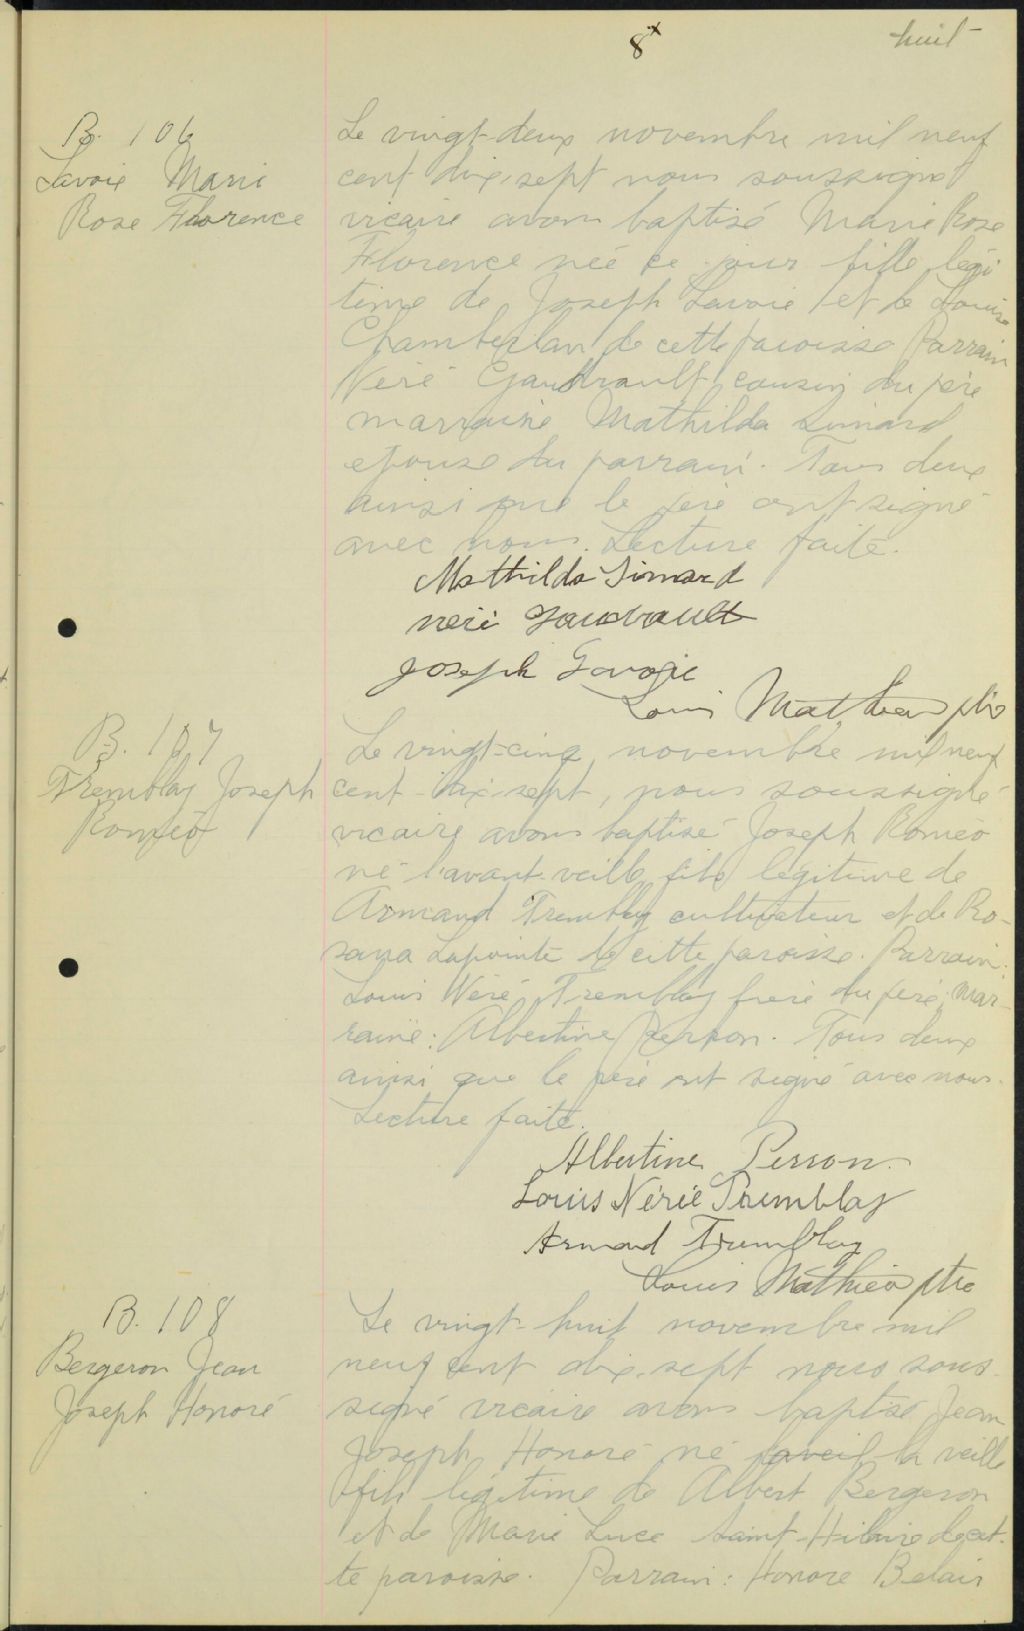 8
huit
B. 106
Lavoie Marie
Rose Florence
Le vingt-deux novembre mil neuf
cent dix-sept nous soussigné
vicaire avons baptisé Marie Rose
Florence née ce jour fille légi
time de Joseph Lavoie et de Louise
Chamberlan de cette paroisse Parrain
Néré Gaudrault cousin du père
marraine Mathilda Simard
épouse du parrain. Tous deux
ainsi que le père ont signé
avec nous. Lecture faite.
Mathilda Simard
Joseph Lavoie
Louis Mathieu ptre
B. 107
Tremblay Joseph
Roméo
Le vingt-cinq novembre mil neuf
cent dix-sept, nous soussigné
vicaire avons baptisé Joseph Roméo
né l'avant-veille fils légitime de
Armand Tremblay cultivateur et de Ro-
sana Lapointe de cette paroisse. Parrain:
Louis Néré Tremblay frère du père; mar-
raine: Albertine Perron. Tous deux
ainsi que le père ont signé avec nous.
Lecture faite.
Albertine Perron.
Louis Nérée Tremblay
Armand Tremblay
Louis Mathieu ptre
B. 108
Bergeron Jean
Joseph Honoré
Le vingt-huit novembre mil
neuf cent dix-sept nous sous-
signé vicaire avons baptisé Jean
Joseph Honoré né la veille
fils légitime de Albert Bergeron
et de Marie Luce Saint-Hilaire de cet-
te paroisse. Parrain: Honoré Belair